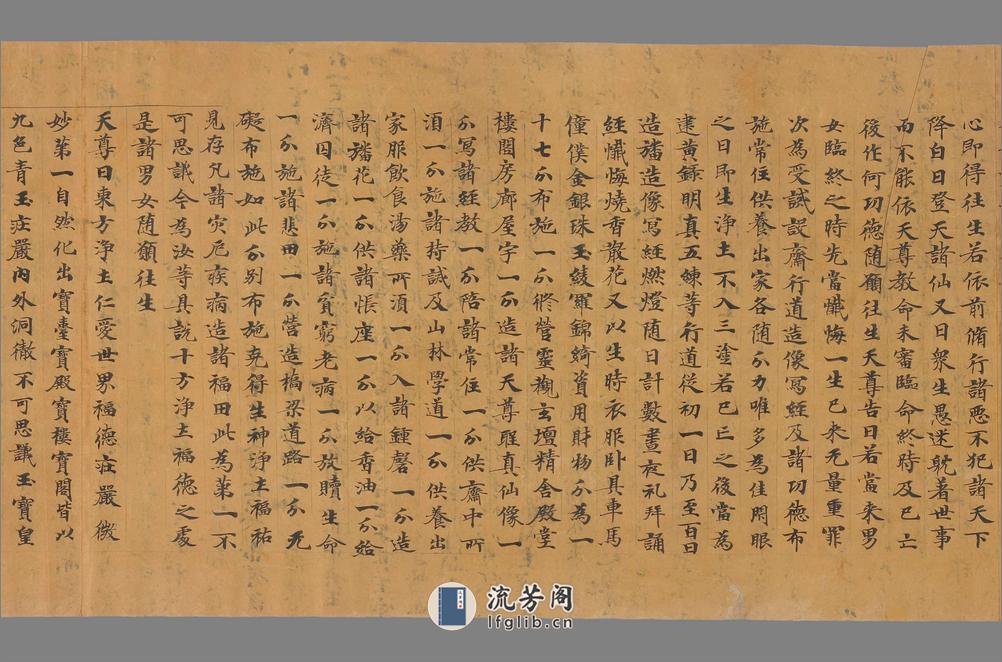 心即得往生若依前脩行諸惡不犯諸天下
降白日登天諸仙又曰衆生愚迷躭着世事
而不能依天尊教命未審臨命終時及已亡
後作何功德随願往生天尊告曰若當來男
女臨終之時先當懺悔一生已來无量重罪
次為受誡設齋行道造像寫經及諸功德布
施常住供養出家各随分力唯多為佳閇眼
之日即生淨土不入三塗若已亡之後當為
建黃籙明真五練等行道從初一日乃至百日
造旛造像寫經燃燈随日計數晝夜礼拜誦
經懺悔燒香散花又以生時衣服卧具車馬
僮僕金銀珠玉綾羅錦綺資用財物分為一
十七分布施一分修營靈觀玄壇精舍殿堂
樓閣房廊屋宇一分造諸天尊聖真仙像一
分寫諸經教一分陪諸常住一分供齋中所
湏一分施諸持誡及山林學道一分供養出
家服飲食湯藥所湏一分入諸鍾磬一分造
諸旛花一分供諸帳座一分以給香油一分給
濟囚徒一分施諸貧窮老病一分放贖生命
一分施諸悲田一分營造橋梁道路一分无
礙布施如此分別布施竟得生神淨土福祐
見存凡諸灾厄疾病造諸福田此為第一不
可思議今為汝等具説十方淨土福德之處
是諸男女随願往生
天尊曰東方淨土仁愛世界福德莊嚴微
妙第一自然化出寶臺寶殿寶樓寶閣皆以
九色青玉莊嚴內外洞徹不可思議玉寶皇
流芳阁
lfglib.cn